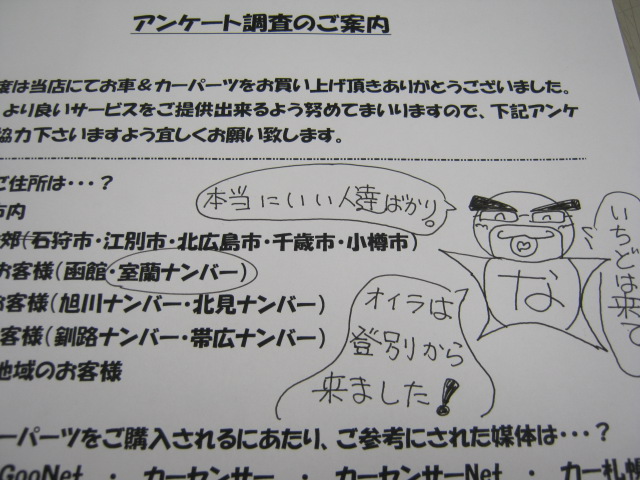 アンケート調査のご案内
度は当店にてお車&カーパーツをお買い上げ頂きありがとうございました。
より良いサービスをご提供出来るよう努めてまいりますので、下記アンケ
協力下さいますよう宜しくお願い致します。
ご住所は・・・?
市内
郊(石狩市・江別市・北広島市・千歳市・小樽市)
お客様(函館・室蘭ナンバー)
お客様(旭川ナンバー・北見ナンバー)
客様(釧路ナンバー・帯広ナンバー)
地域のお客様
本当にいい人達ばかり。
な
いちどは来て
オイラは
登別から
来ました!
ーパーツをご購入されるにあたり、ご参考にされた媒体は・・・?
GooNet ・ カーセンサー ・ カーセンサーNet ・ カー札幌